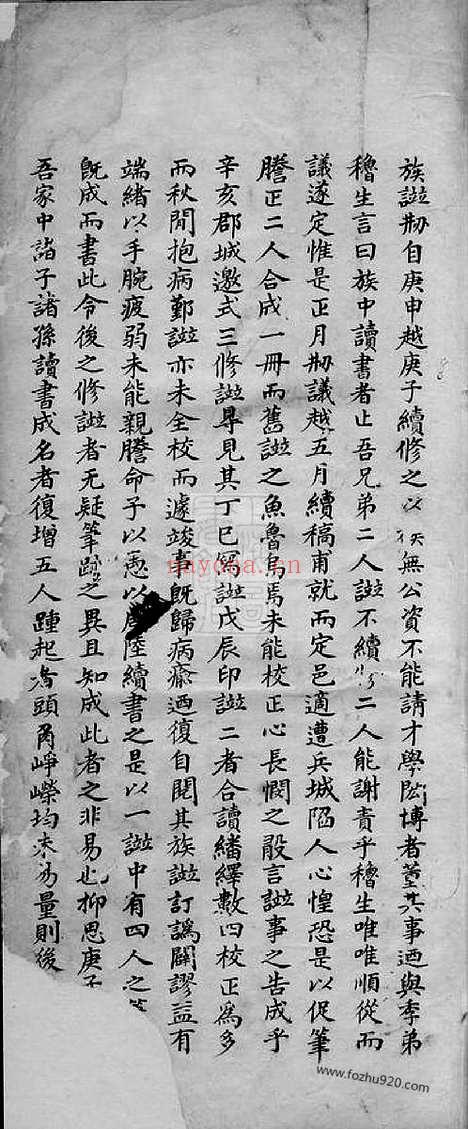 族譜刱自庚申越庚子續修之以族無公資不能請才學閎博者董其事迺與季弟
穭生言曰族中讀書者止吾兄弟二人譜不續修二人能謝責乎穭生唯唯順從而
議遂定惟是正月刱議越五月續稿甫就而定邑適遭兵城陷人心惶恐是以促筆
謄正二人合成一冊而舊譜之魚魯烏焉未能校正心長憫之殷言譜事之告成乎
辛亥郡城邀式三修譜尋見其丁巳寫譜戊辰印譜二者合讀繙繹數四校正為多
而秋閒抱病鄞譜亦未全校而遽竣事既歸病瘉迺復自閱其族譜訂譌闕謬益有
端緒以手腕疲弱未能親謄命子以愚以陸續書之是以一譜中有四人之
既成而書此令後之修譜者无疑筆跡之異且知成此者之非易也抑思庚子
吾家中諸子諸孫讀書成名者復增五人踵起湾頭角崢嶸均未易量則後
nayona.cn
www.fozhu920.com